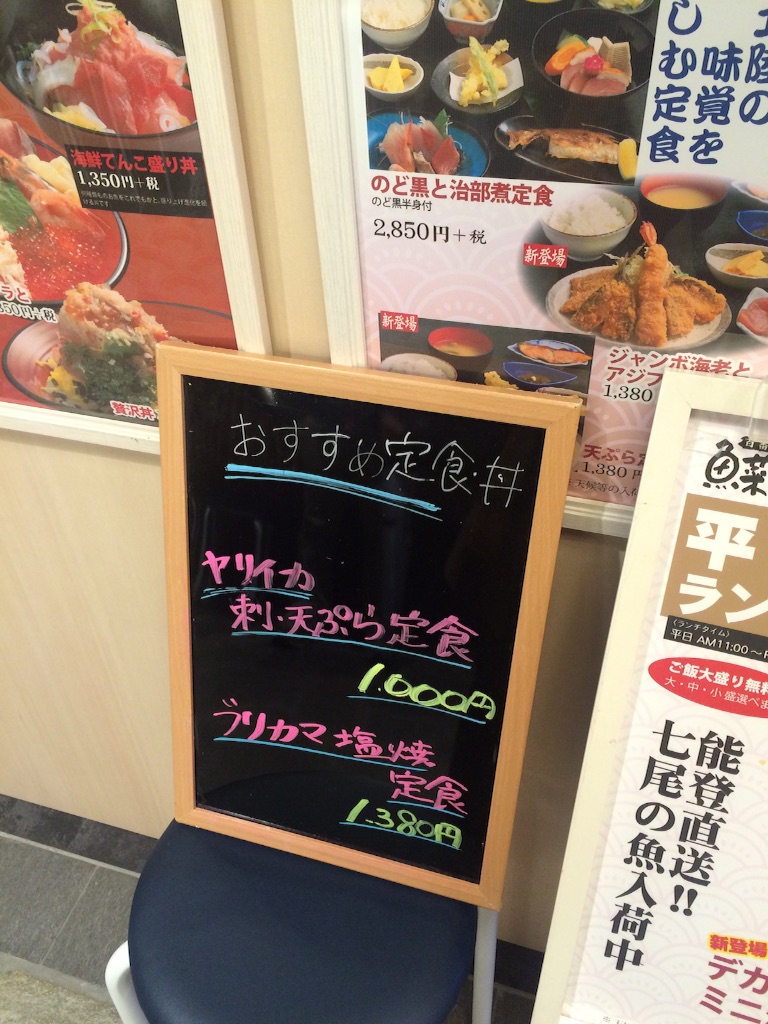 海鮮てんこ盛り丼
1,350円+税
贅沢丼
味覚を
しむ定食
のど黒と治部煮定食
のど黒半身付
2,850円+税
新登場
新登場
ジャンボ海老と
アジフ
1,380
天ぷら定
1,380円
天候等の入荷
おすすめ定食・丼
ヤリイカ
刺・天ぷら定食
1.000円
ブリカマ塩焼
定食
1.380円
魚菜
平
ラン
〈ランチタイム〉
平日 AM11:00～
ご飯大盛り無料
大・中・小盛選べま
能登直送!!
七尾の魚入荷中
新登場
デカ
ミニ